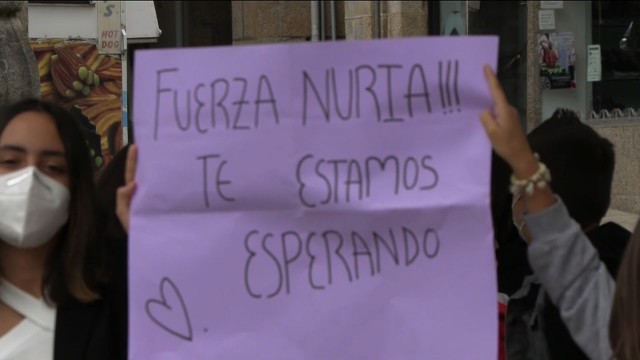 S
HOT
DOG
FUERZA NURIA!!!
TE ESTAMOS
ESPERANDO